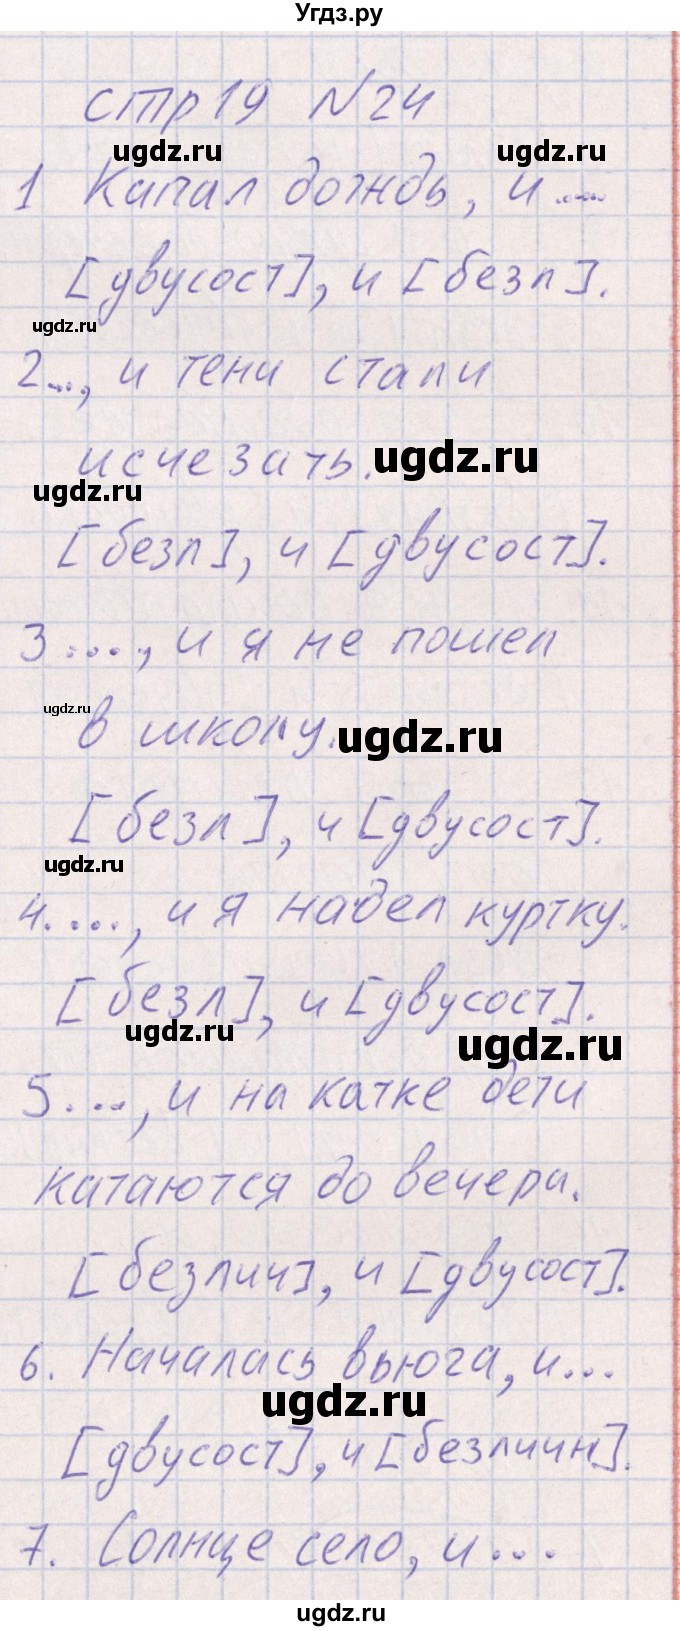 Угдз.ру
стр19 №24
ugdz.ru ugdz.ru
1 Капал дождь, и .....
[двусост], и [безл].
ugdz.ru
2..., и тени стали
исчезать.
ugdz.ru
ugdz.ru
[безл], и [двусост].
3...., и я не пошел
ugdz.ru
в школу.
ugdz.ru
[безл], и [двусост].
ugdz.ru
4. ..., и я надел куртку.
[безл], и [двусост].
ugdz.ru
ugdz.ru
5...., и на катке дети
катаются до вечера.
[безлич], и [двусост].
6. Началась вьюга, и...
ugdz.ru
[двусост], и [безличн].
7. Солнце село, и ...
ugdz.ru